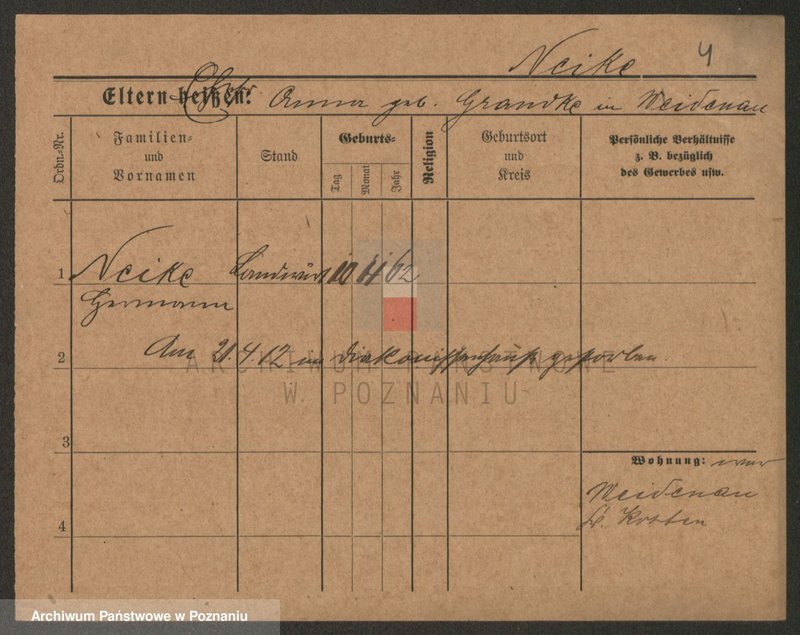 Neike 4
Eltern heißen: Ehefr. Anna geb. Grandke in Weidenau
Ordn.-Nr.
Familien- und Vornamen
Stand
Geburts-
Tag
Monat
Jahr
Religion
Geburtsort und Kreis
Persönliche Verhältnisse
z. B. bezüglich
des Gewerbes usw.
1 Neike Landwirt 10 4 62
Hermann
2 Am 21.4.12 im Diakonissenhause gestorben
ARCHIWUM PAŃSTWOWE
W POZNANIU
3
Wohnung: war
Weidenau
4 Kr. Kosten
Archiwum Państwowe w Poznaniu